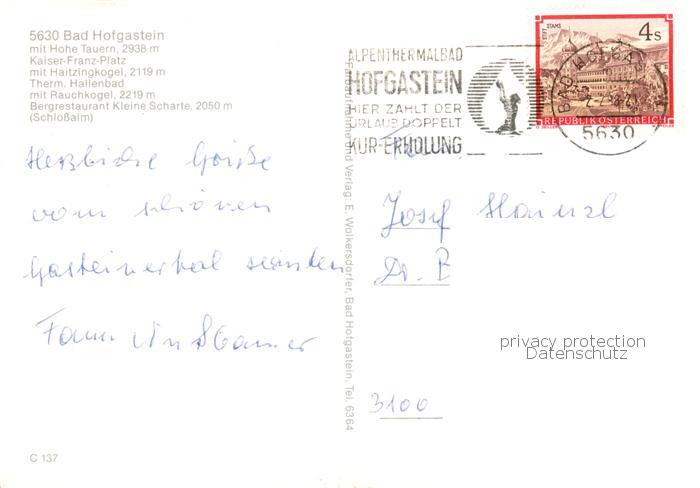 5630 Bad Hofgastein
mit Hohe Tauern, 2938 m
Kaiser-Franz-Platz
mit Haitzingkogel, 2119 m
Therm. Hallenbad
mit Rauchkogel, 2219 m
Bergrestaurant Kleine Scharte, 2050 m
(Schloßalm)
Herzliche Grüße
vom schönen
Gasteinertal senden
Fam.
C 137
Verlag: E. Wolkersdorfer, Bad Hofgastein, Tel. 6364
ALPENTHERMALBAD
HOFGASTEIN
HIER ZAHLT DER
URLAUB DOPPELT
KUR-ERHOLUNG
STIFT STAMS
4 S
REPUBLIK ÖSTERREICH
5630
Fam.
Josef
Dr.
3100
privacy protection
Datenschutz